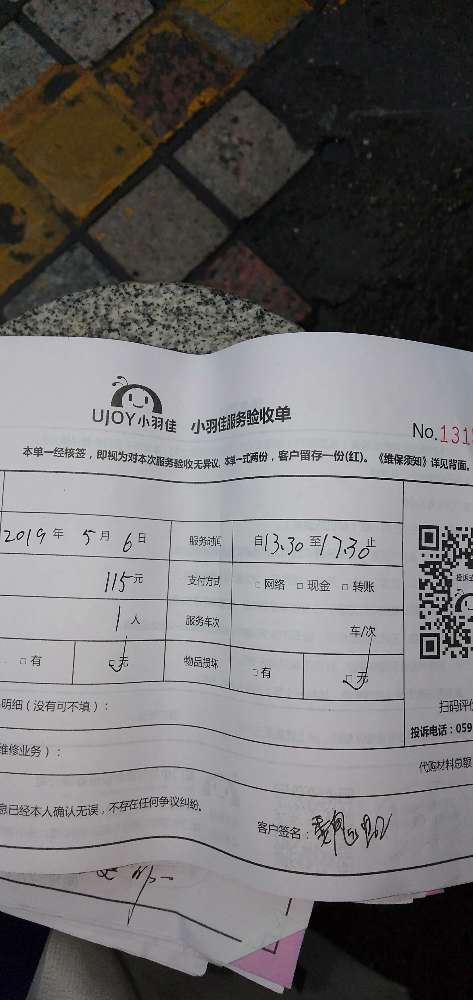 UJOY小羽佳 小羽佳服务验收单
No.131
本单一经核签，即视为对本次服务验收无异议，本单一式两份，客户留存一份(红)。《维保须知》详见背面。
2019年 5月 6日 服务时间 自13.30至17.30止
115元 支付方式 □网络 □现金 □转账
1人 服务车次 车/次
□有 □无 物品损坏 □有 □无
扫码评价
明细（没有可不填）：
投诉电话：059
维修业务）：
代购材料总额
息已经本人确认无误，不存在任何争议纠纷。
客户签名：